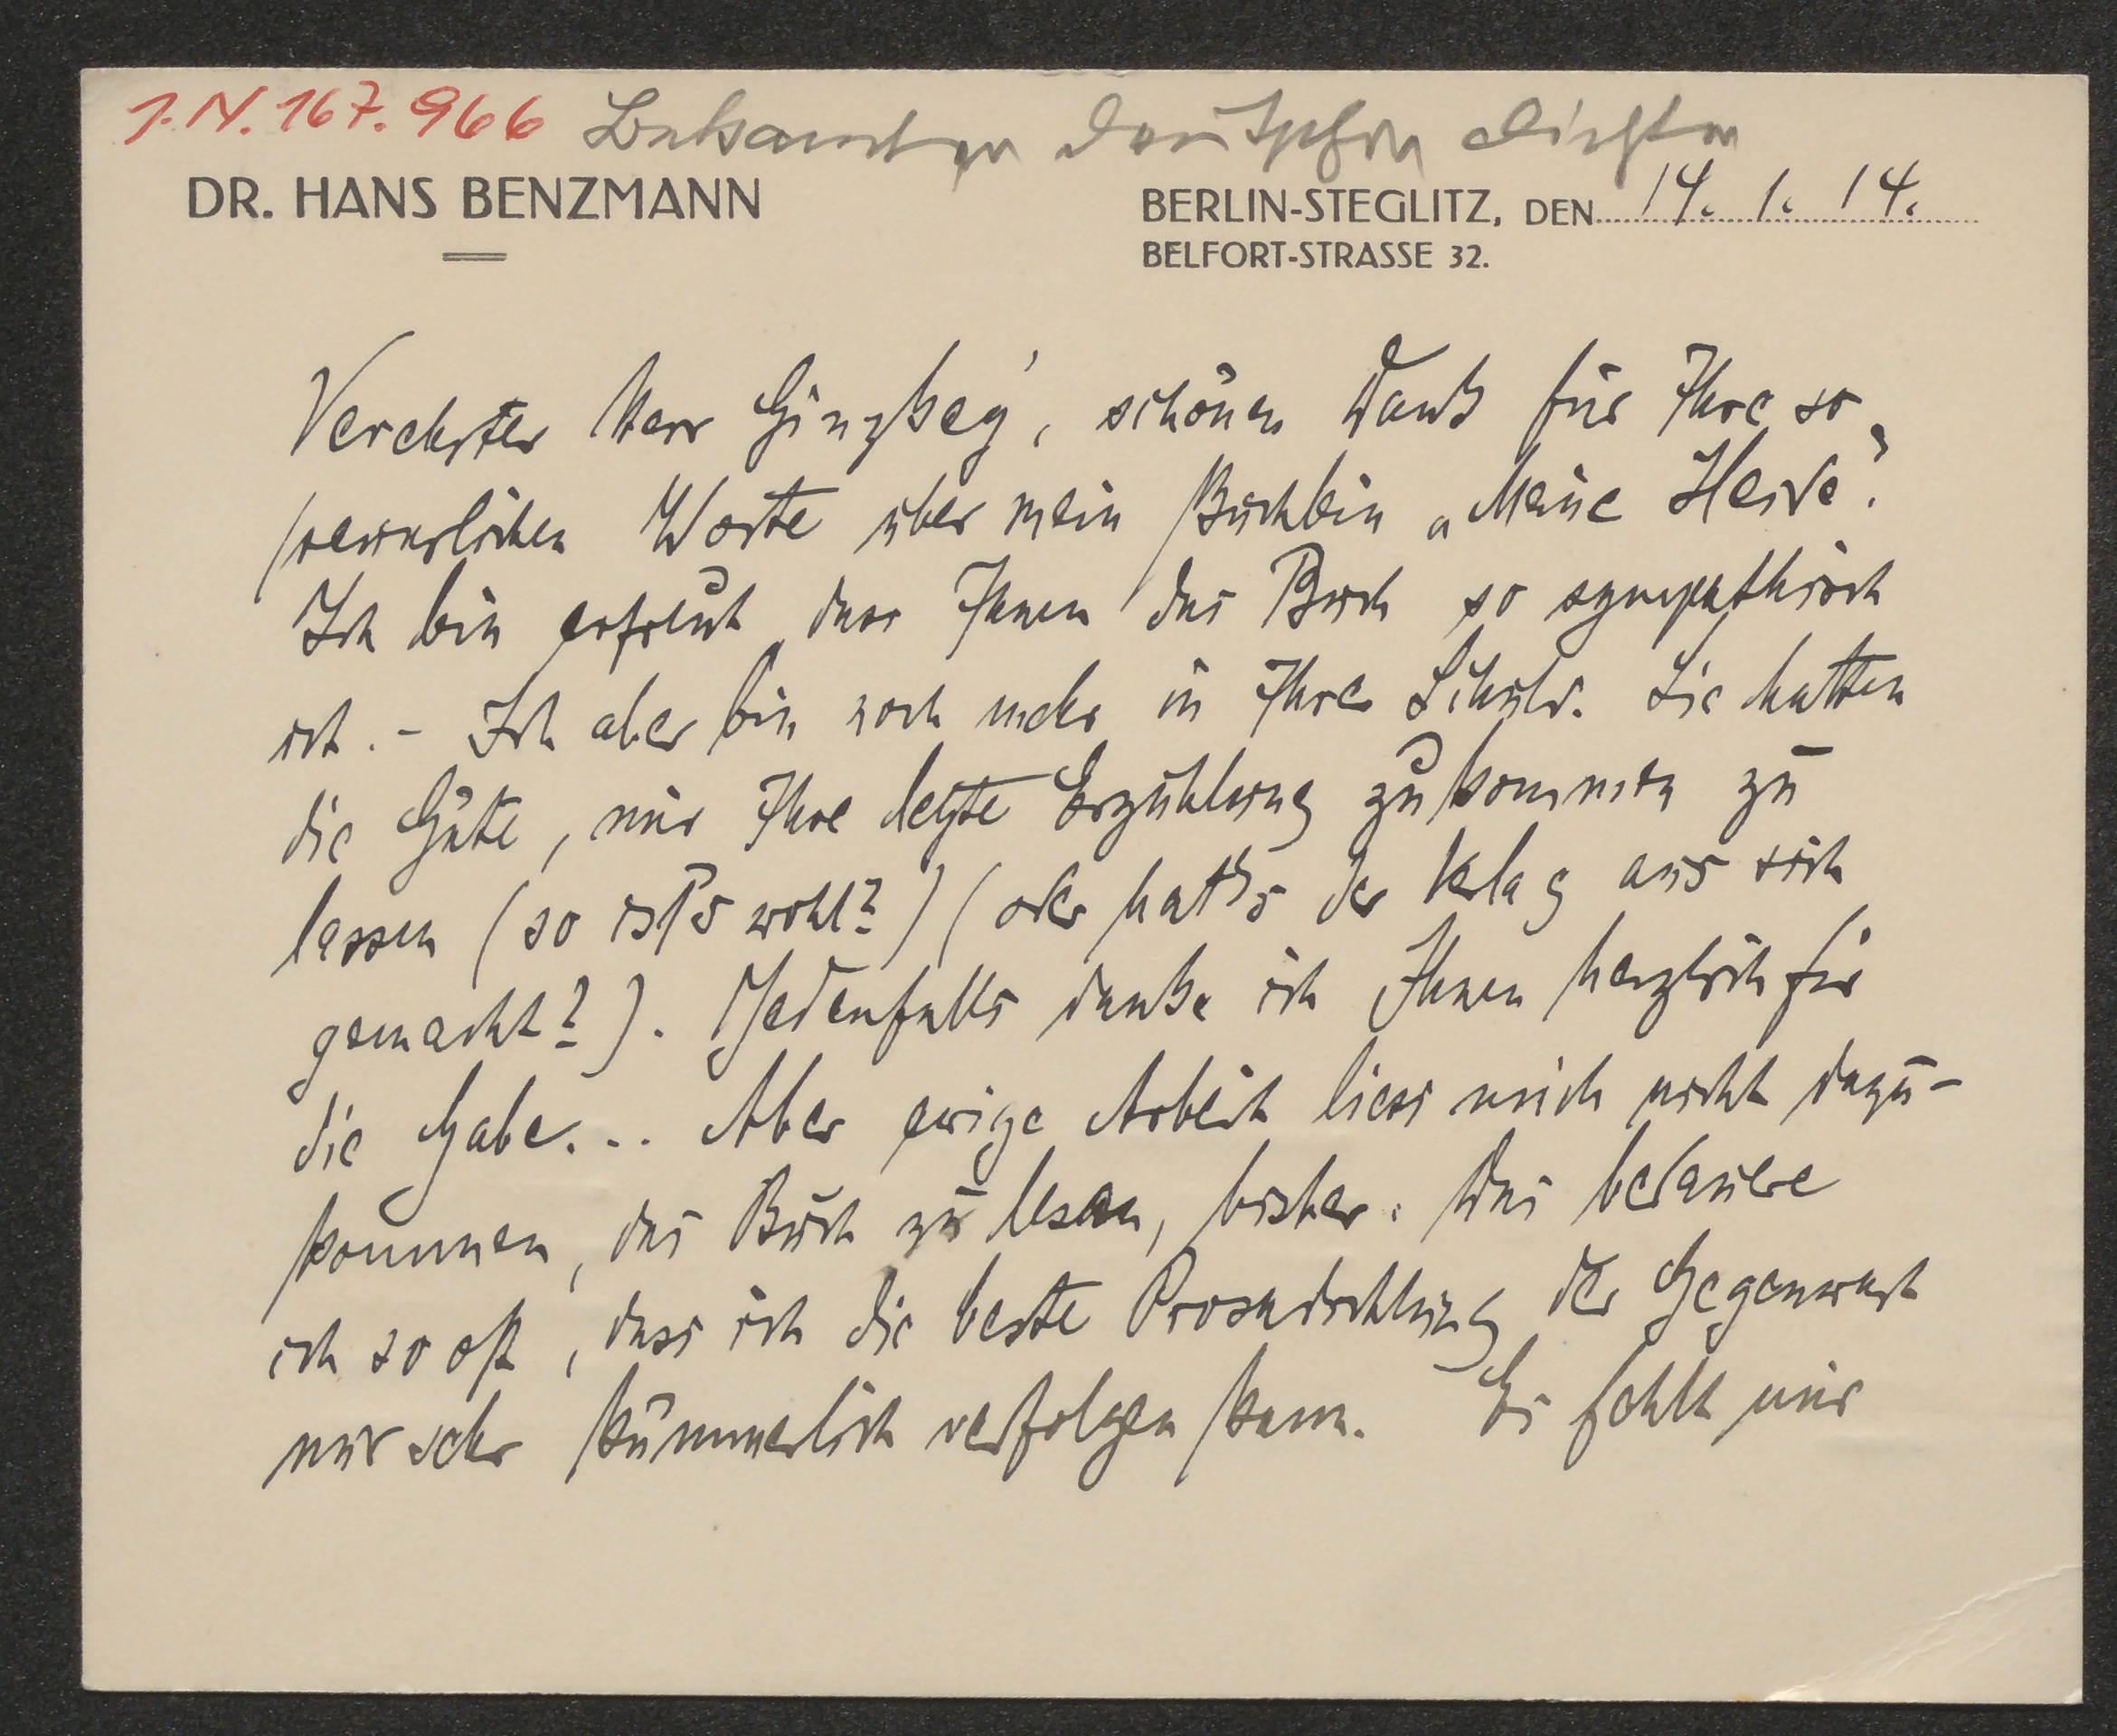 I.N. 167.966 Bekannter deutscher Dichter
DR. HANS BENZMANN
BERLIN-STEGLITZ, DEN 14. 1. 14.
BELFORT-STRASSE 32.
Verehrter Herr Ginzkey, schönen Dank für Ihre so
freundlichen Worte über mein Büchlein „Meine Heide“.
Ich bin erfreut, dass Ihnen das Buch so sympathisch
ist. - Ich aber bin noch mehr in Ihrer Schuld. Sie hatten
die Güte, mir Ihre letzte Erzählung zukommen zu
lassen (so ists wohl?) (oder hat's der Verlag aus sich
gemacht?). Jedenfalls danke ich Ihnen herzlich für
die Gabe... Aber ewige Arbeit liess mich nicht dazu-
kommen, das Buch zu lesen, bisher. Das bedaure
ich so oft, dass ich die beste Prosadichtung der Gegenwart
nur sehr kümmerlich verfolgen kann. Es fehlt mir